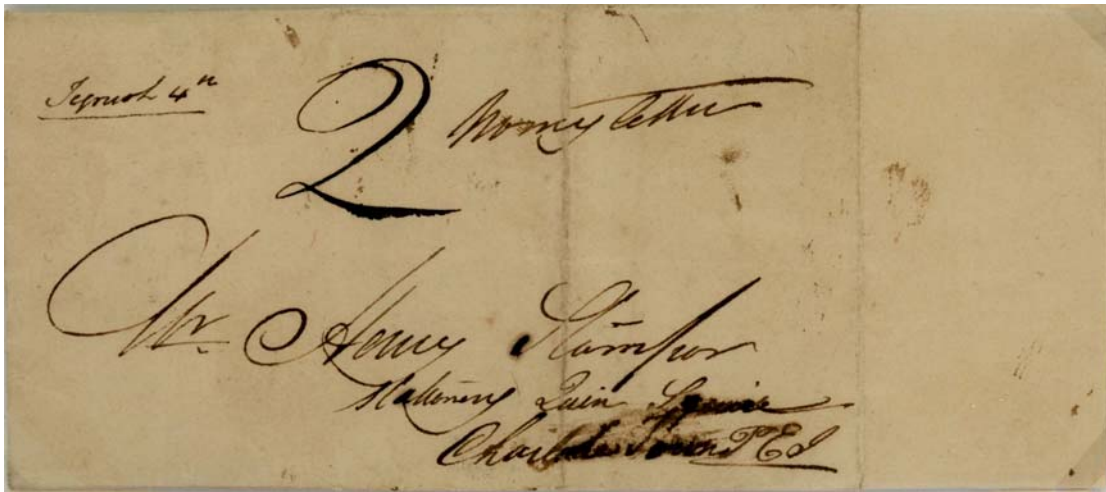 Tegnish 4th
2 Money letter
Mr. Henry Stamper
Stationery Quin Square
Charlotte Town P E I